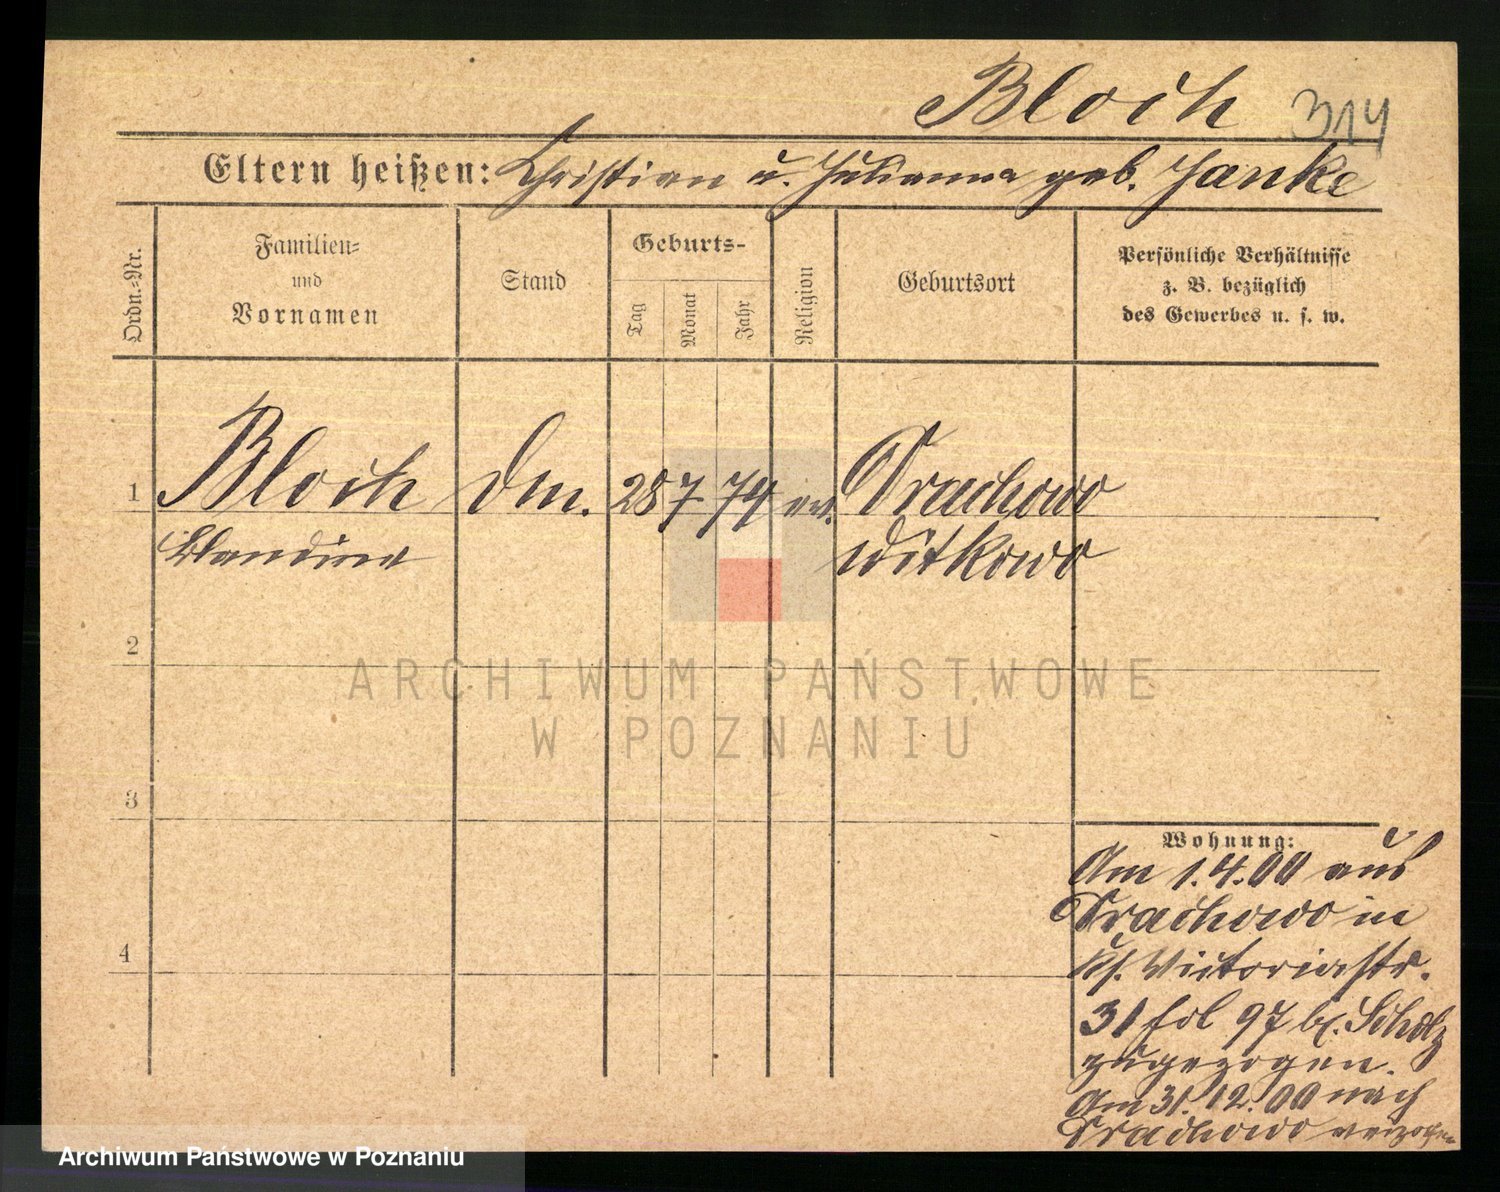 Bloch 314
Eltern heißen: Christian u. Julianna geb. Janke
Ordn.-Nr.
Familien-
und
Vornamen
Stand
Geburts-
Tag
Monat
Jahr
Religion
Geburtsort
Persönliche Verhältnisse
z. B. bezüglich
des Gewerbes u. s. w.
1 Bloch 28 7 74 ev. Drachowo
Blandina Witkowo
2
3
4
Wohnung:
Am 1.4.00 aus
Drachowo in
Victoriastr.
31 fol 97 b. Scholz
zugezogen.
Am 31.12.00 nach
Drachowo verzogen
ARCHIWUM PAŃSTWOWE
W POZNANIU
Archiwum Państwowe w Poznaniu